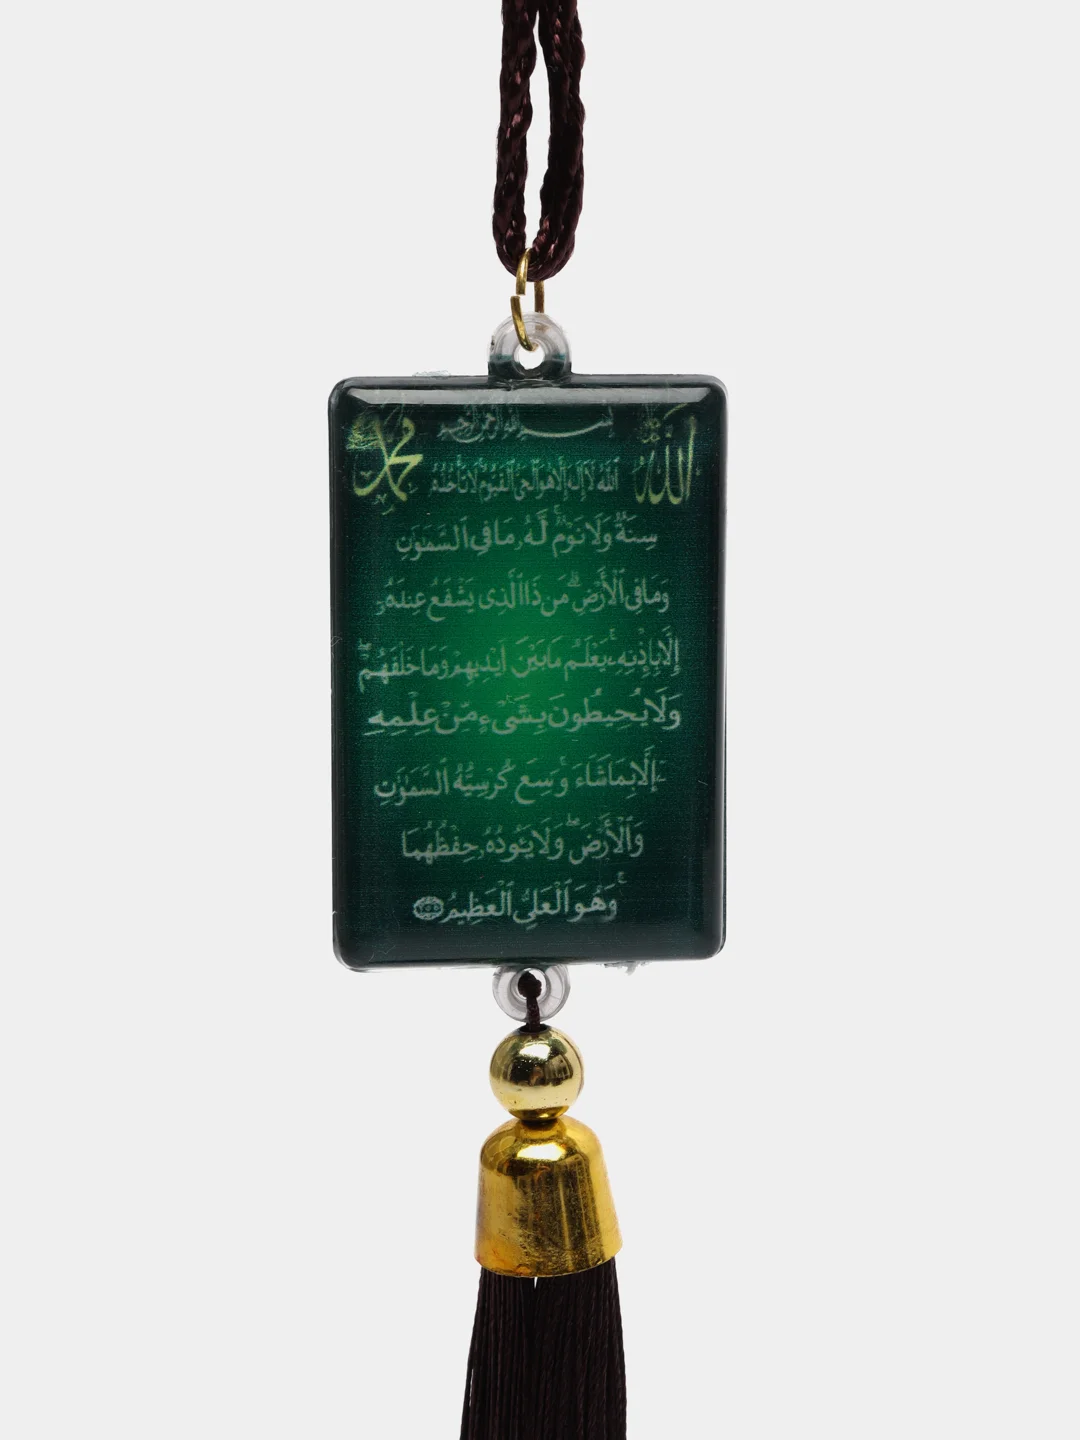 الله
محمد
بسم الله الرحمن الرحيم
ٱللَّهُ لَآ إِلَٰهَ إِلَّا هُوَ ٱلْحَىُّ ٱلْقَيُّومُ لَا تَأْخُذُهُۥ
سِنَةٌ وَلَا نَوْمٌ لَّهُۥ مَا فِى ٱلسَّمَٰوَٰتِ
وَمَا فِى ٱلْأَرْضِ ۗ مَن ذَا ٱلَّذِى يَشْفَعُ عِندَهُۥٓ
إِلَّا بِإِذْنِهِۦ ۚ يَعْلَمُ مَا بَيْنَ أَيْدِيهِمْ وَمَا خَلْفَهُمْ ۖ
وَلَا يُحِيطُونَ بِشَىْءٍ مِّنْ عِلْمِهِ
إِلَّا بِمَا شَآءَ ۚ وَسِعَ كُرْسِيُّهُ ٱلسَّمَٰوَٰتِ
وَٱلْأَرْضَ ۖ وَلَا يَـُٔودُهُۥ حِفْظُهُمَا ۚ
وَهُوَ ٱلْعَلِىُّ ٱلْعَظِيمُ